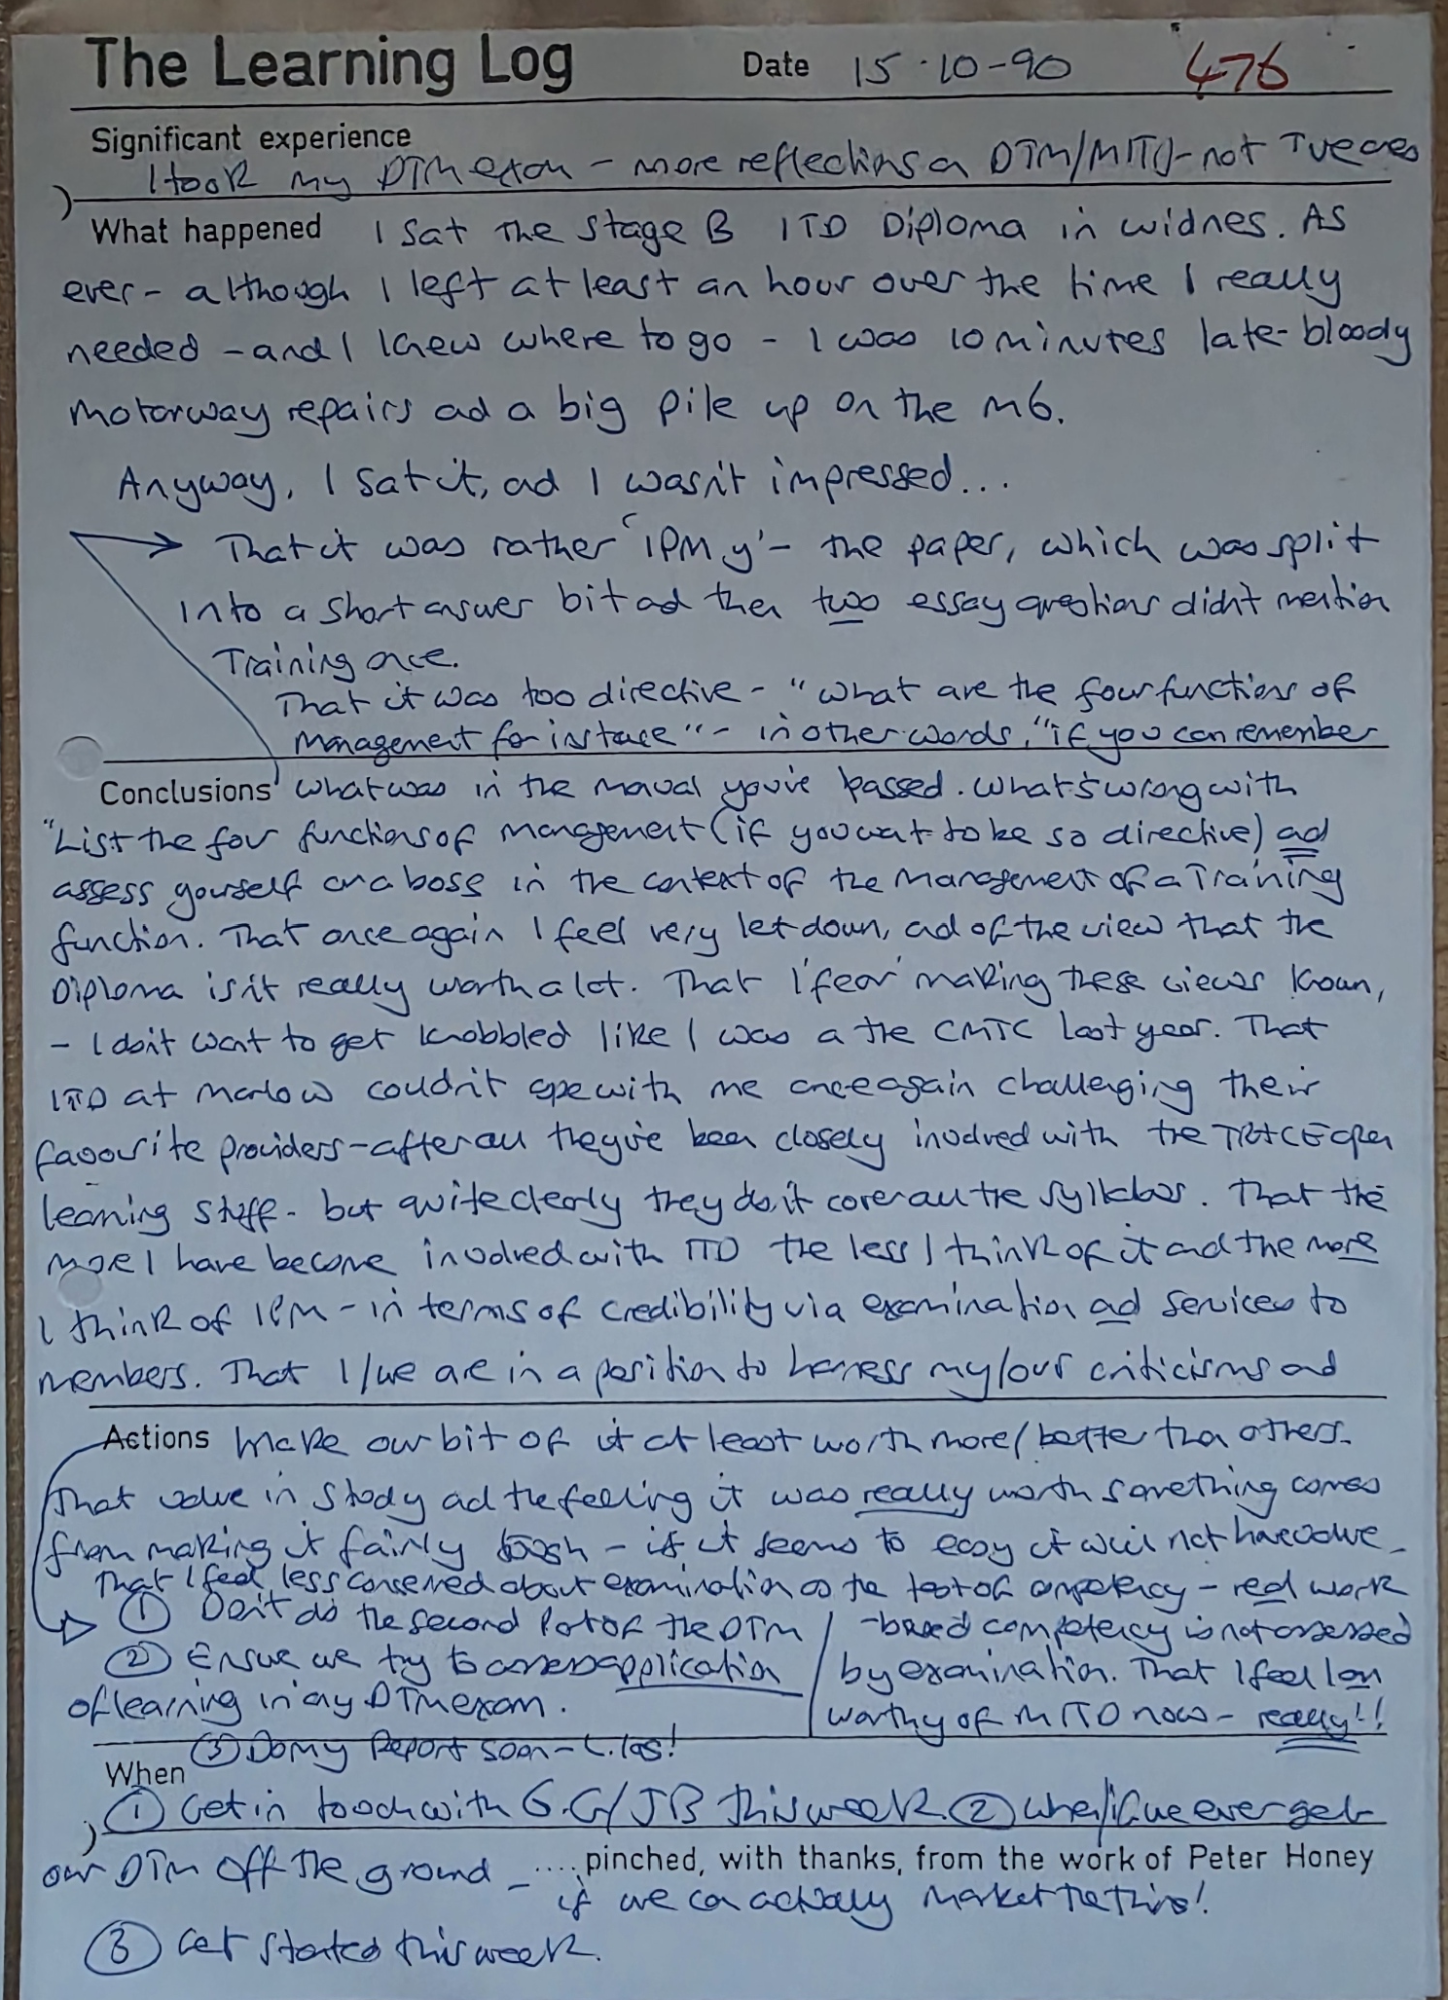 The Learning Log Date 15.10-90 476
Significant experience
I took my DTM exam - more reflections on DTM/MITD - not
What happened I sat the Stage B ITD Diploma in Widnes. As
ever - although I left at least an hour over the time I really
needed - and I knew where to go - I was 10 minutes late - bloody
motorway repairs ad a big pile up on the M6.
Anyway, I sat it, ad I wasn't impressed...
That it was rather 'IPM,y' - the paper, which was split
into a short answer bit ad then two essay questions didn't mention
Training once.
That it was too directive - "what are the four functions of
Management for instance" - in other words, "if you can remember
Conclusions what was in the manual you've passed. What's wrong with
"List the four functions of management (if you want to be so directive) ad
assess yourself or a boss in the context of the management of a Training
function. That once again I feel very let down, ad of the view that the
Diploma isn't really worth a lot. That I 'fear' making these views known,
- I don't want to get knobbled like I was a the CMTC last year. That
ITD at Marlow couldn't cope with me once again challenging their
favourite providers - after all they've been closely involved with the open
learning stuff - but quite clearly they don't cover all the syllabus. That the
more I have become involved with ITD the less I think of it and the more
I think of IPM - in terms of credibility via examination ad services to
members. That I/we are in a position to harness my/our criticisms ad
Actions make our bit of it at least worth more/better than others.
That value in study ad the feeling it was really worth something comes
from making it fairly tough - if it seems to easy it will not have value.
That I feel less concerned about examination as the test of competency - real work
① Don't do the second part of the DTM / -based competency is not assessed
② Ensure we try to assess application / by examination. That I feel I am
of learning in any DTM exam. / worthy of MITD now - really!!
③ Do my Report soon -
When
① Get in touch with G.G/JB this week ② when/if we ever get
our DTM off the ground - ....pinched, with thanks, from the work of Peter Honey
if we can actually market the thing!
③ Get started this week.